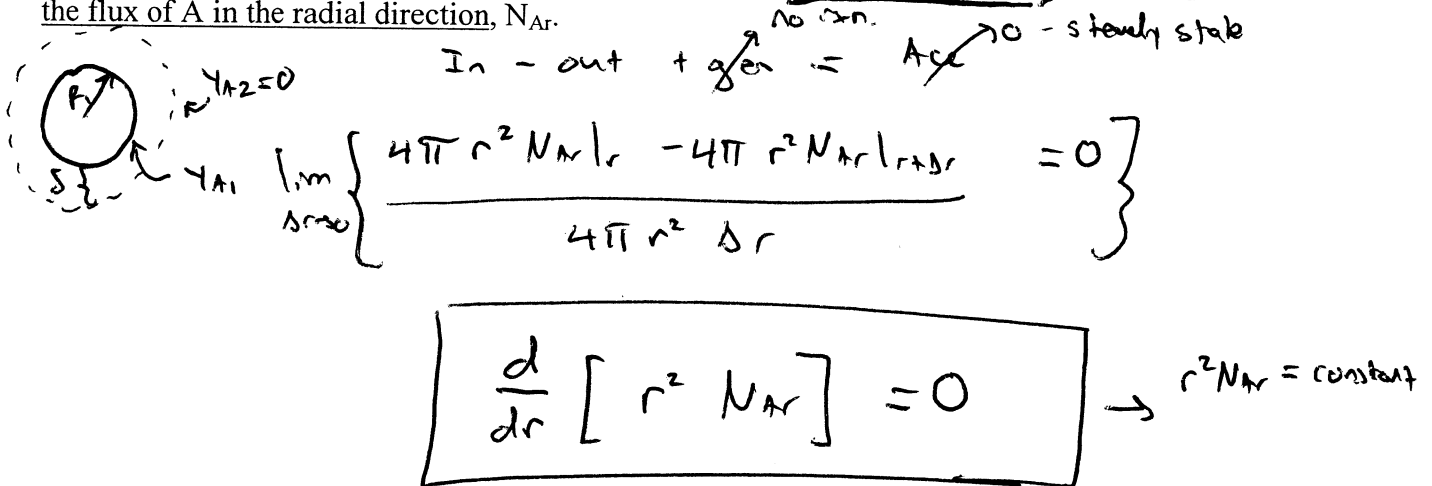 the flux of A in the radial direction, N_Ar.
no rxn.
In - out + gen = Acc → 0 - steady state
R
y_A2 = 0
δ {
y_A1
lim Δr→0 { (4π r² N_Ar|r - 4π r² N_Ar|r+Δr) / (4π r² Δr) = 0 }
d/dr [ r² N_Ar ] = 0 → r² N_Ar = constant